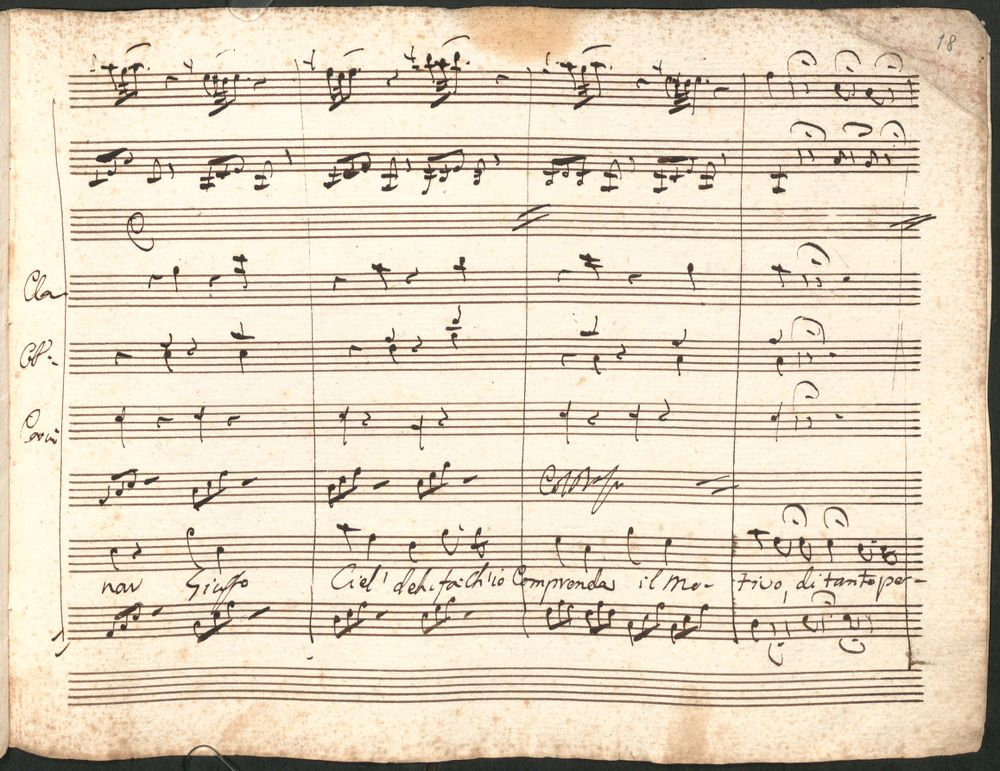 18
Cla
Ob:
Corni
Col Basso
nar Giusto Ciel! deh fa ch'io Comprenda il Mo- tivo, di tanto per-